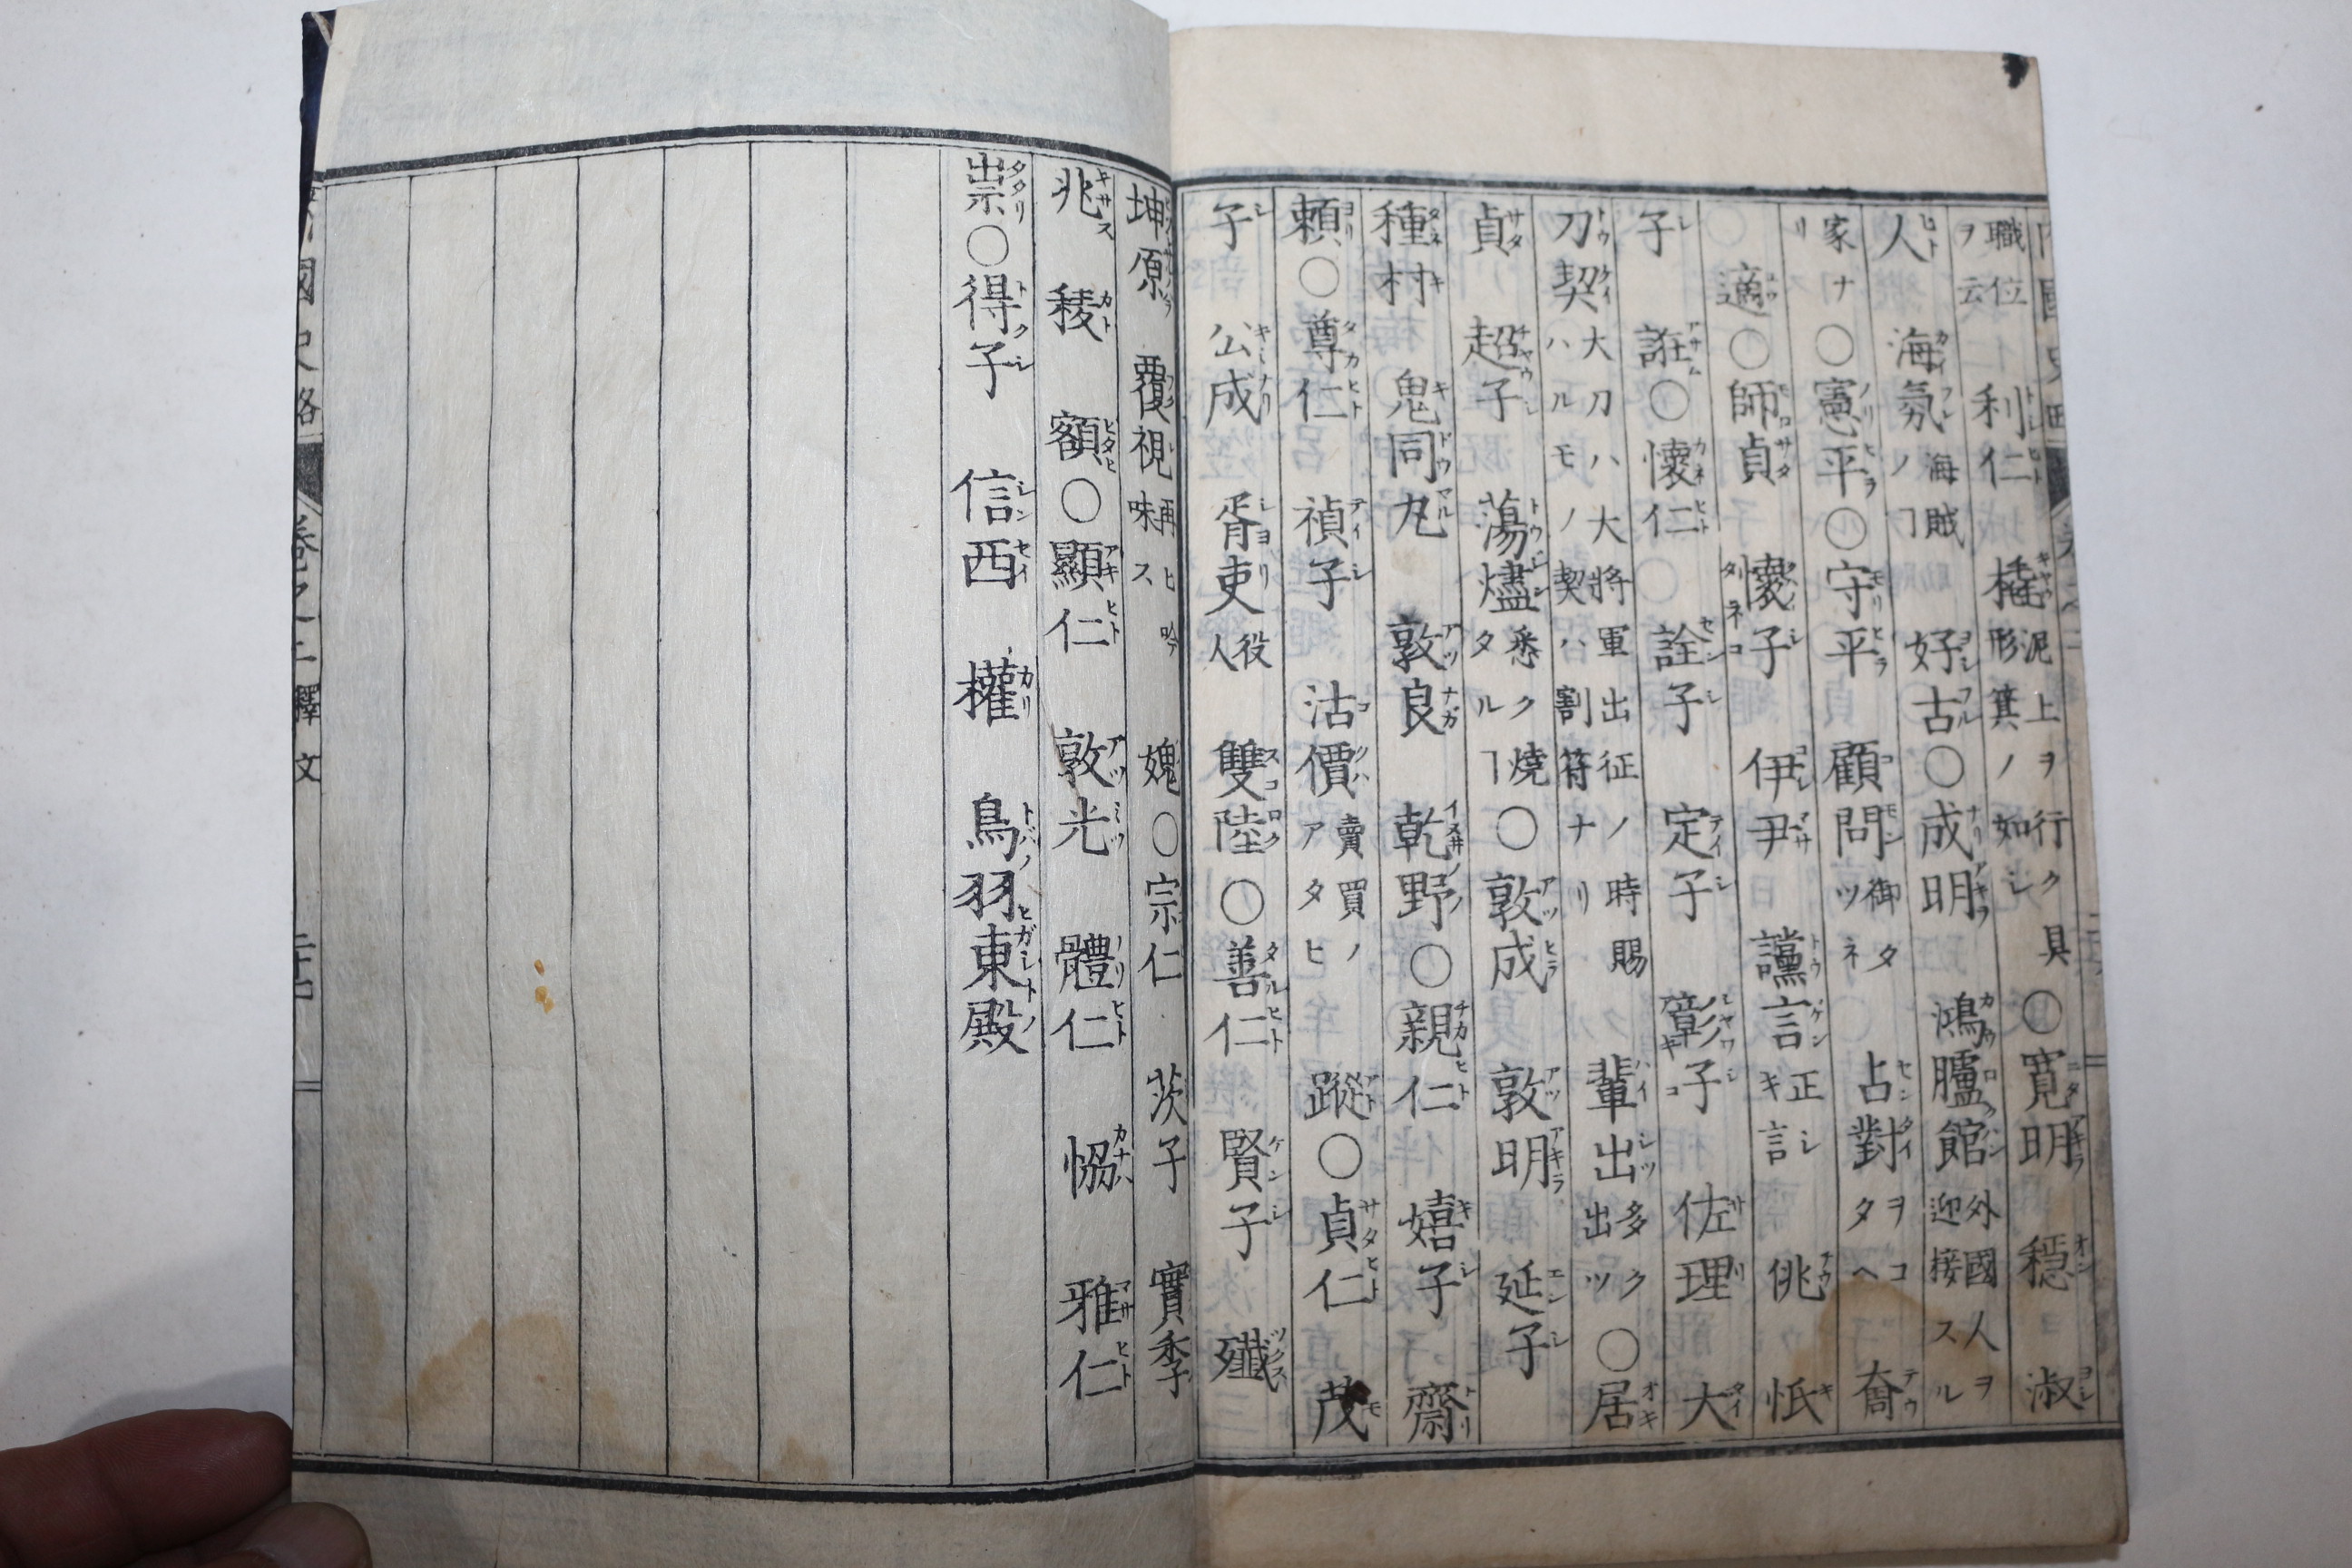 職位
ヲ云
利仁
橇
泥上ヲ行ク具
形箕ノ如シ
〇寛明 穏 淑
人 海氛
海賊
ノヿ
好古〇成明 鴻臚館
外國人ヲ
迎接スル
家ナ
リ
〇憲平〇守平 顧問
御タ
ツネ
占對
ヲコ
タヘ
奝
適〇師貞 懐子 伊尹 讜言
正シ
キ言
佻 恔
子 誑〇懐仁〇 詮子 定子 彰子 佐理 大
刀契
大刀ハ大將軍出征ノ時賜
ハルモノ契ハ割符ナリ
輩出
多ク
出ツ
〇居
貞 超子 蕩燼
悉ク燒
タルヿ
〇敦成 敦明 延子
種村 鬼同丸 敦良 乾野〇親仁 嬉子 齋
頼〇尊仁 禎子 沽價
賣買ノ
アタヒ
蹤〇貞仁 茂
子 公成 胥吏
役
人
雙陸〇善仁 賢子 殲
坤原 覆視
再ヒ吟
味ス
媿〇宗仁 茨子 實季
兆 稜 額〇顯仁 敦光 體仁 恊 雅仁
祟〇得子 信西 權 鳥羽東殿
國史略 卷之二 釋文